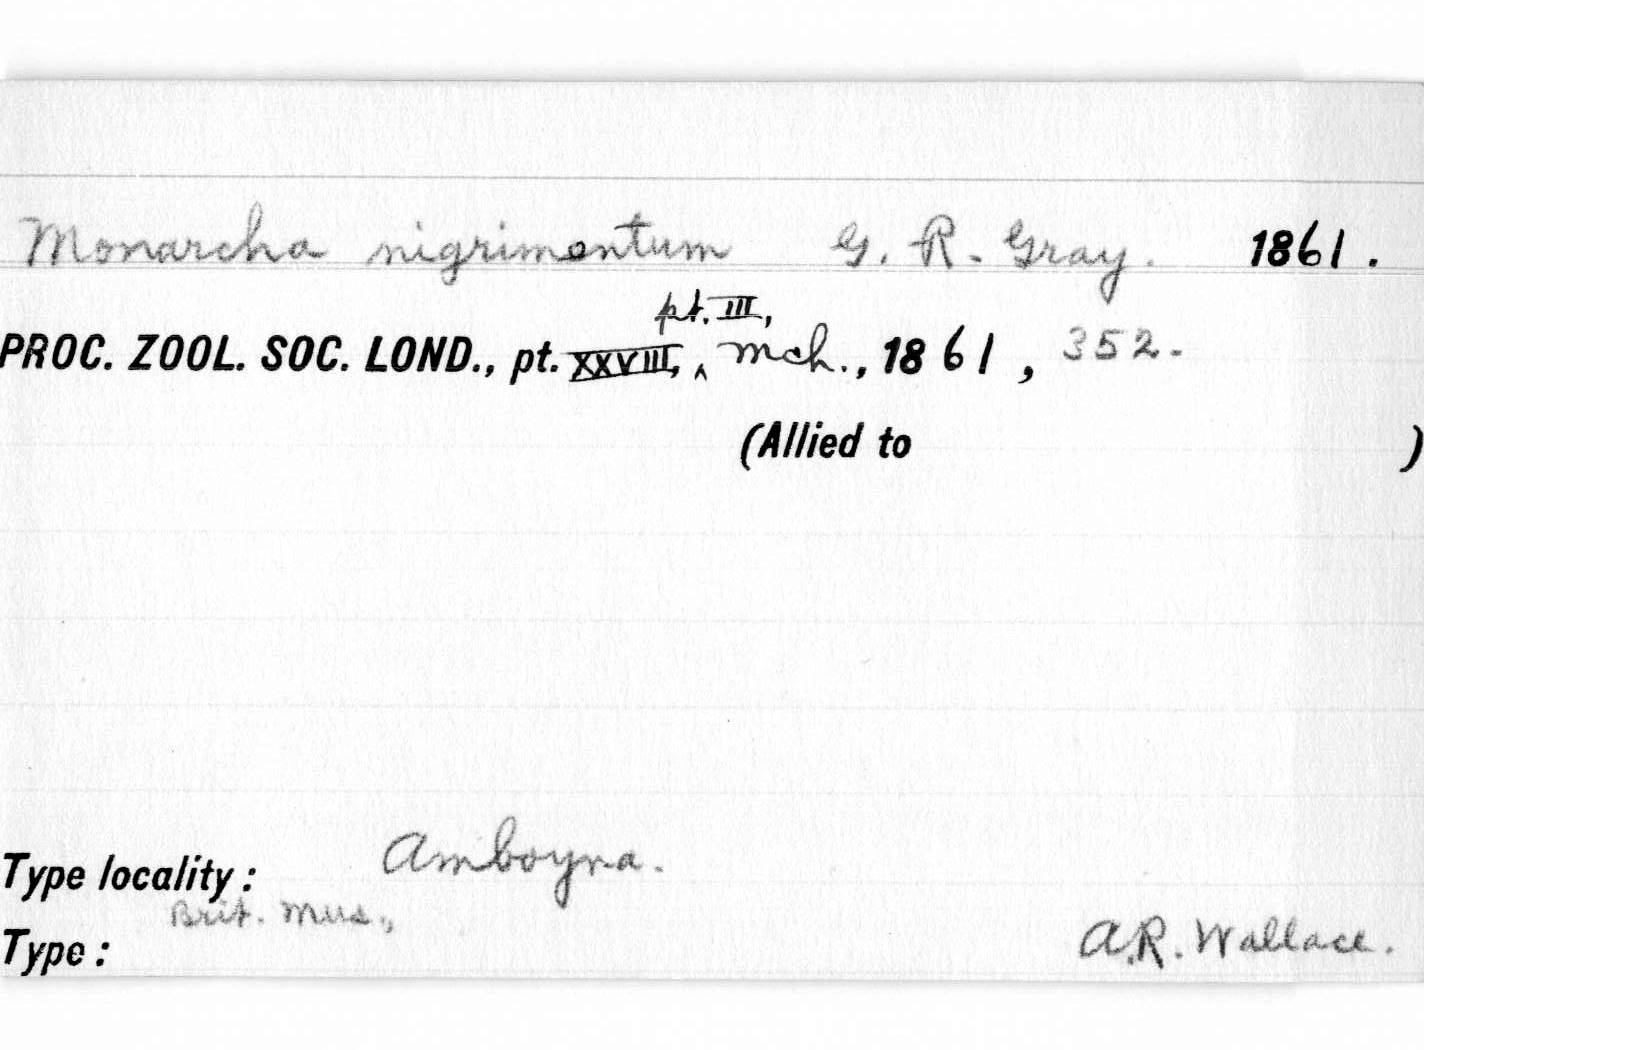 Monarcha nigrimentum G. R. Gray. 1861.
pt. III,
PROC. ZOOL. SOC. LOND., pt. XXVIII, ‸ Mch., 1861, 352.
(Allied to )
Type locality: Amboyna.
Brit. Mus.,
Type: A.R. Wallace.